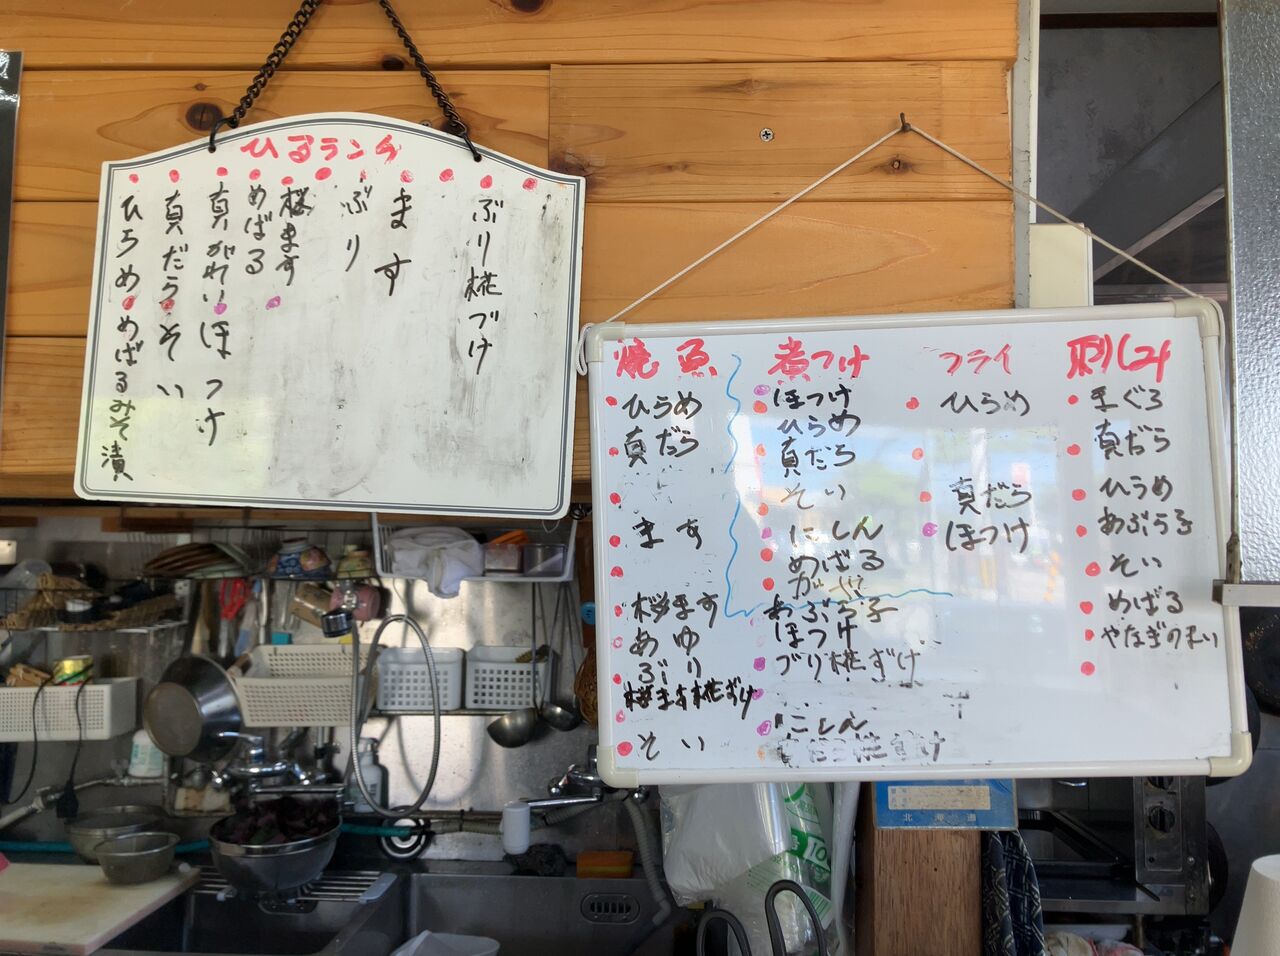 ひるランチ
ぶり糀づけ
ます
ぶり
桜ます
めばる
真がれい
ほっけ
真だら
そい
ひらめ
めばるみそ漬
焼魚
ひらめ
真だら
ます
桜ます
あゆ
ぶり
桜ます糀づけ
そい
煮つけ
ほっけ
ひらめ
真だら
そい
にしん
めばる
あぶら子
ほっけ
ぶり糀ずけ
にしん
フライ
ひらめ
真だら
ほっけ
刺し身
まぐろ
真だら
ひらめ
あぶら子
そい
めばる
やなぎのまい
北海道